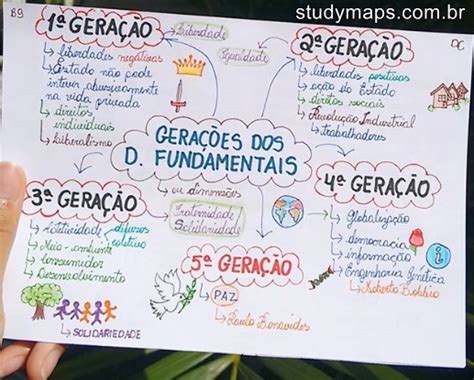 studymaps.com.br
89
DC
GERAÇÕES DOS
D. FUNDAMENTAIS
↳ ou dimensões
1ª GERAÇÃO
Liberdade
↳ liberdades negativas
↳ Estado não pode
intervir abusivamente
na vida privada
↳ direitos
individuais
↳ Liberalismo
2ª GERAÇÃO
Igualdade
↳ liberdades positivas
↳ ação do Estado
↳ direitos sociais
↳ Revolução Industrial
↳ trabalhadores
3ª GERAÇÃO
Fraternidade
Solidariedade
↳ Coletividade → difusos
coletivo
↳ Meio-ambiente
↳ consumidor
↳ Desenvolvimento
↳ SOLIDARIEDADE
4ª GERAÇÃO
↳ Globalização
↳ democracia
↳ informação
i
↳ Engenharia Genética
↳ Norberto Bobbio
5ª GERAÇÃO
↳ PAZ
↳ Paulo Bonavides